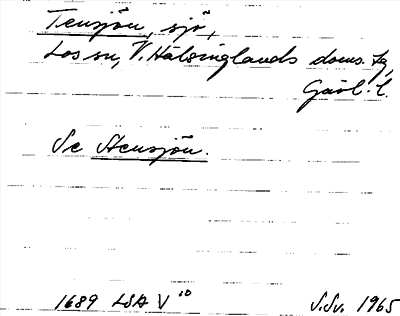 Tensjön, sjö,
Los sn, V. Hälsinglands doms. tg,
Gävl. l.
Se Stensjön.
1689 LSA V 10
S.Sv. 1965